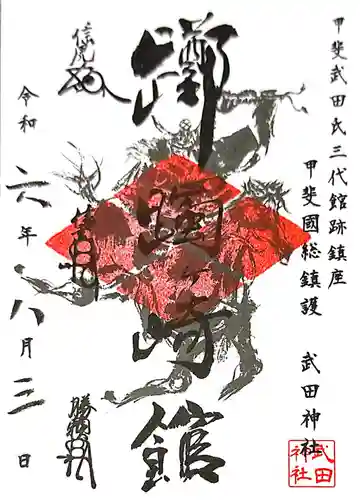 甲斐武田氏三代館跡鎮座
甲斐國総鎮護　武田神社
武田
神社
躑
躅
ヶ
崎
館
信虎
勝頼
令和六年八月三日